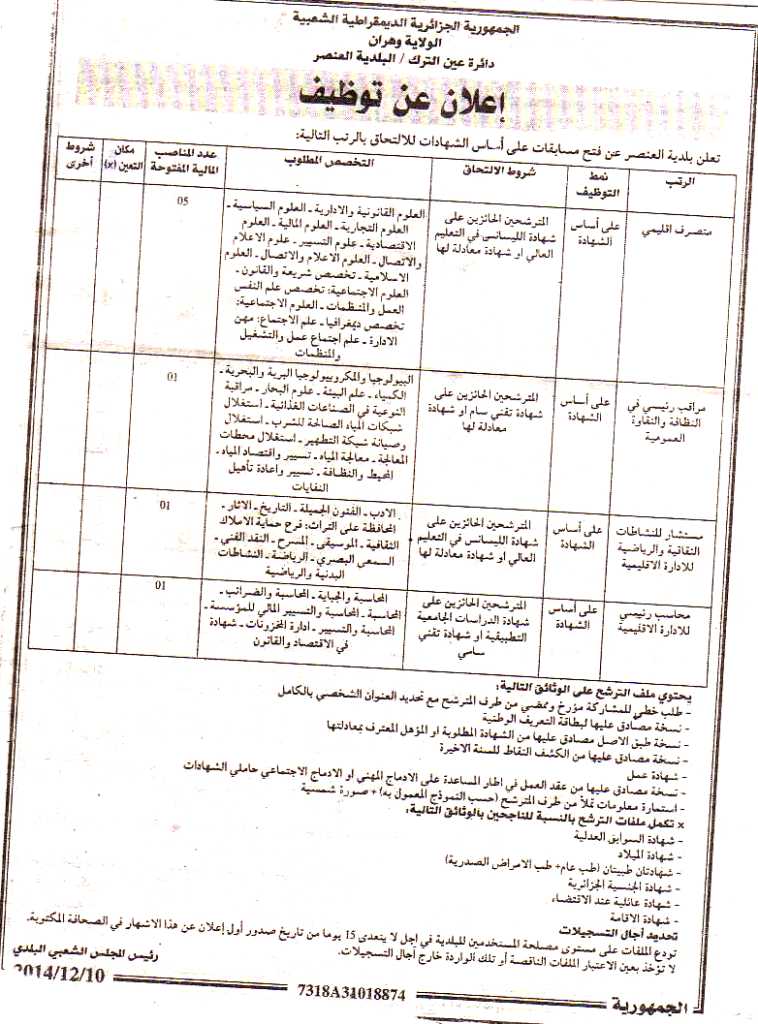 الجمهورية الجزائرية الديمقراطية الشعبية
الولاية وهران
دائرة عين الترك / البلدية العنصر
إعلان عن توظيف
تعلن بلدية العنصر عن فتح مسابقات على أساس الشهادات للالتحاق بالرتب التالية:
الرتب
نمط
التوظيف
شروط الالتحاق
التخصص المطلوب
عدد المناصب
المالية المفتوحة
مكان
التعين (x)
شروط
أخرى
متصرف اقليمي
على أساس
الشهادة
المترشحين الحائزين على
شهادة الليسانس في التعليم
العالي او شهادة معادلة لها
العلوم القانونية والادارية ـ العلوم السياسية ـ
العلوم التجارية ـ العلوم المالية ـ العلوم
الاقتصادية ـ علوم التسيير ـ علوم الاعلام
والاتصال ـ العلوم الاعلام والاتصال ـ العلوم
الاسلامية ـ تخصص شريعة والقانون ـ
العلوم الاجتماعية: تخصص علم النفس
العمل والمنظمات ـ العلوم الاجتماعية:
تخصص ديمغرافيا ـ علم الاجتماع: مهن
الادارة ـ علم اجتماع عمل والتشغيل
والمنظمات
05
مراقب رئيسي في
النظافة والنقاوة
العمومية
على أساس
الشهادة
المترشحين الحائزين على
شهادة تقني سام او شهادة
معادلة لها
البيولوجيا والمكروبيولوجيا البرية والبحرية ـ
الكمياء ـ علم البيئة ـ علوم البحار ـ مراقبة
النوعية في الصناعات الغذائية ـ استغلال
شبكات المياه الصالحة للشرب ـ استغلال
وصيانة شبكة التطهير ـ استغلال محطات
المعالجة ـ معالجة المياه ـ تسيير واقتصاد المياه ـ
المحيط والنظافة ـ تسيير واعادة تأهيل
النفايات
01
مستشار للنشاطات
الثقافية والرياضية
للادارة الاقليمية
على أساس
الشهادة
المترشحين الحائزين على
شهادة الليسانس في التعليم
العالي او شهادة معادلة لها
الادب ـ الفنون الجميلة ـ التاريخ ـ الاثار ـ
المحافظة على التراث: فرع حماية الاملاك
الثقافية ـ الموسيقى ـ المسرح ـ النقد الفني ـ
السمعي البصري ـ الرياضة ـ النشاطات
البدنية والرياضية
01
محاسب رئيسي
للادارة الاقليمية
على أساس
الشهادة
المترشحين الحائزين على
شهادة الدراسات الجامعية
التطبيقية او شهادة تقني
سامي
المحاسبة والجباية ـ المحاسبة والضرائب ـ
المحاسبة ـ المحاسبة والتسيير المالي للمؤسسة ـ
المحاسبة والتسيير ـ ادارة المخزونات ـ شهادة
في الاقتصاد والقانون
01
يحتوي ملف الترشح على الوثائق التالية:
- طلب خطي للمشاركة مؤرخ وممضي من طرف المترشح مع تحديد العنوان الشخصي بالكامل
- نسخة مصادق عليها لبطاقة التعريف الوطنية
- نسخة طبق الاصل مصادق عليها من الشهادة المطلوبة او المؤهل المعترف بمعادلتها
- نسخة مصادق عليها من الكشف النقاط للسنة الاخيرة
- شهادة عمل
- نسخة مصادق عليها من عقد العمل في اطار المساعدة على الادماج المهني او الادماج الاجتماعي حاملي الشهادات
- استمارة معلومات تملأ من طرف المترشح (حسب النموذج المعمول به) + صورة شمسية
x تكمل ملفات الترشح بالنسبة للناجحين بالوثائق التالية:
- شهادة السوابق العدلية
- شهادة الميلاد
- شهادتان طبيتان (طب عام+ طب الامراض الصدرية)
- شهادة الجنسية الجزائرية
- شهادة عائلية عند الاقتضاء
- شهادة الاقامة
تحديد أجال التسجيلات
تودع الملفات على مستوى مصلحة المستخدمين للبلدية في اجل لا يتعدى 15 يوما من تاريخ صدور أول إعلان عن هذا الاشهار في الصحافة المكتوبة.
لا تؤخذ بعين الاعتبار الملفات الناقصة أو تلك الواردة خارج أجال التسجيلات.
رئيس المجلس الشعبي البلدي
الجمهورية
7318A31018874
2014/12/10